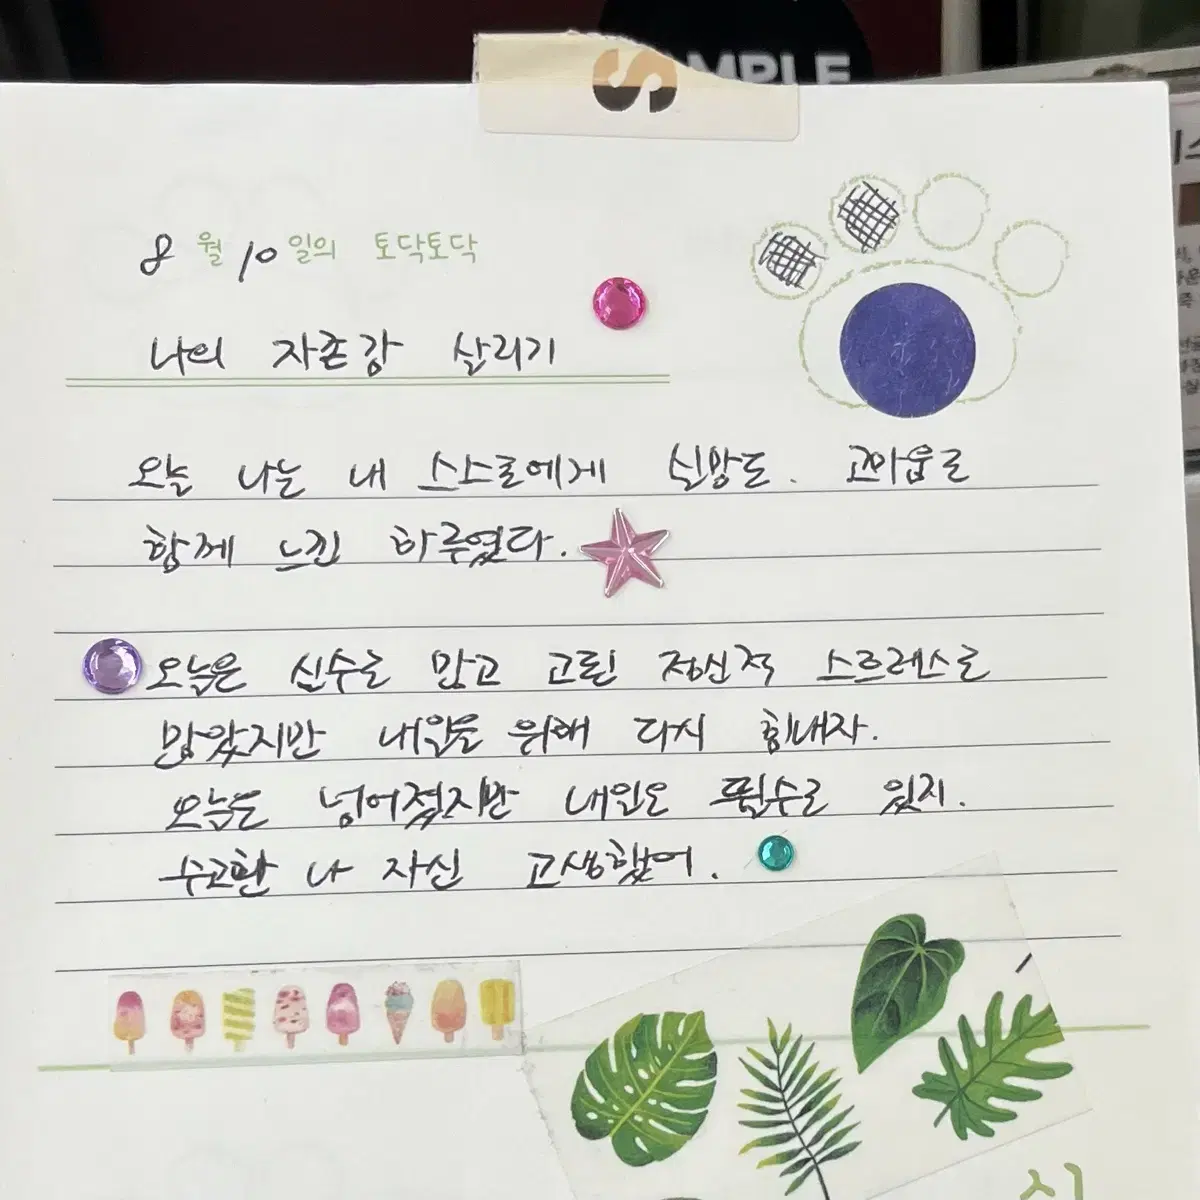 SAMPLE
8월 10일의 토닥토닥
나의 자존감 살리기
오늘 나는 내 스스로에게 실망도. 고마움도
함께 느낀 하루였다.
오늘은 실수로 많고 고된 정신적 스트레스로
많았지만 내일을 위해 다시 힘내자.
오늘은 넘어졌지만 내일은 뛸수도 있지.
수고한 나 자신 고생했어.